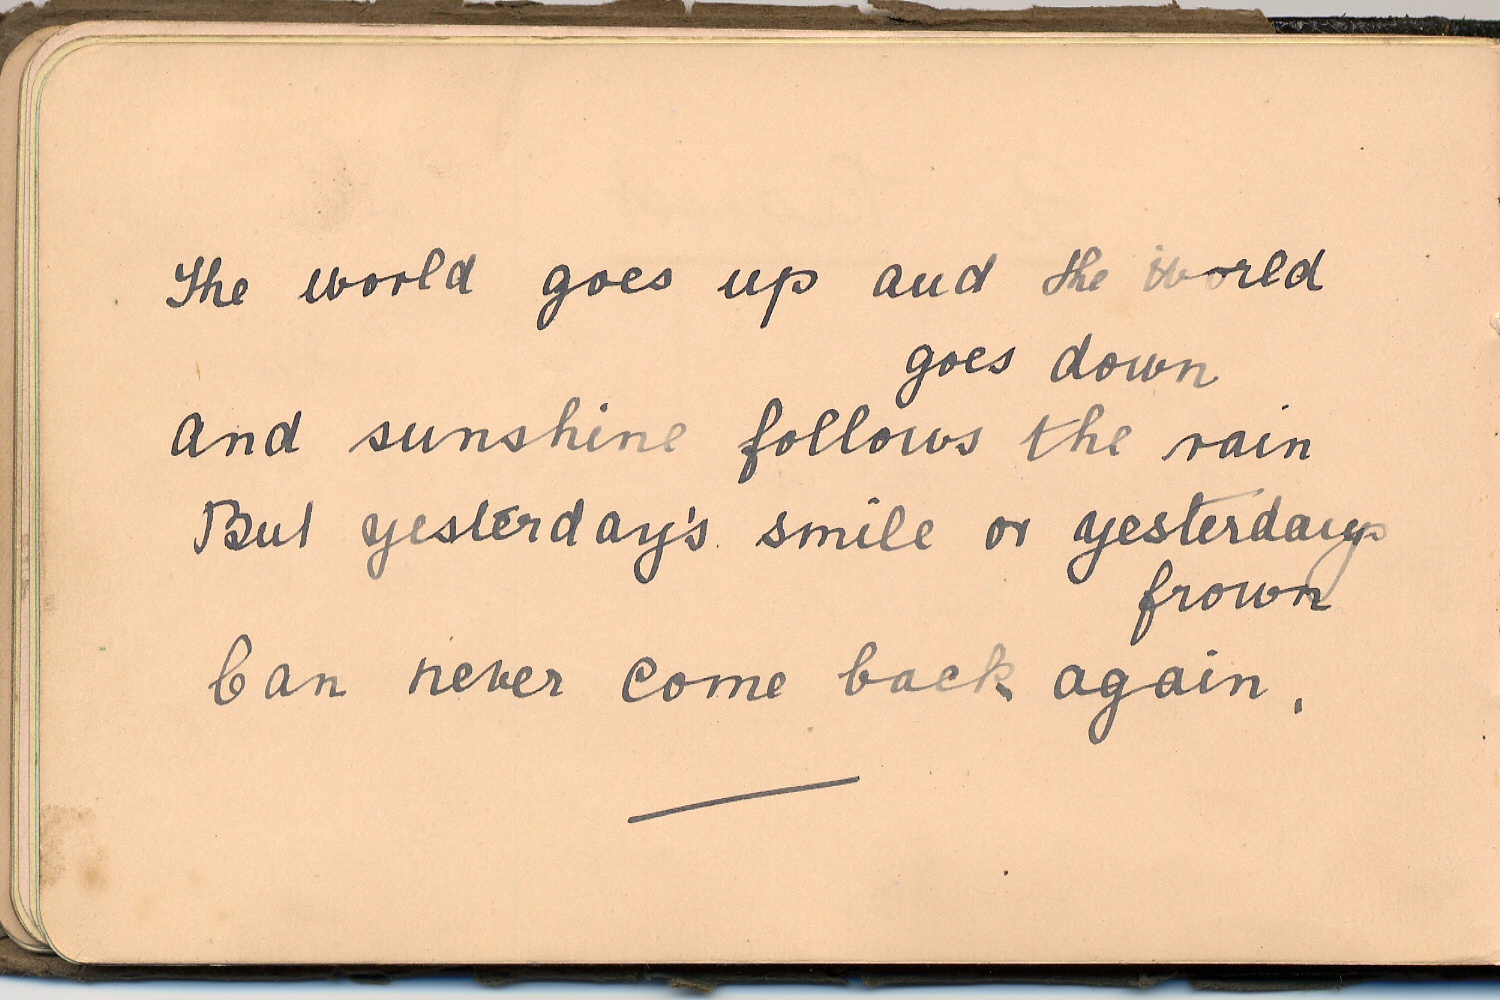 The world goes up and the world
goes down
And sunshine follows the rain
But yesterday's smile or yesterdays
frown
Can never come back again.